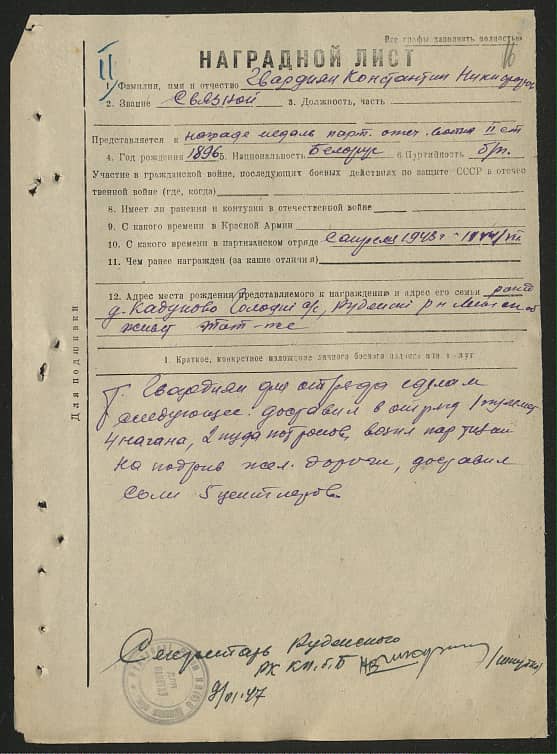 Все графы заполнить полностью
16
II
НАГРАДНОЙ ЛИСТ
1. Фамилия, имя и отчество Гвардиян Константин
2. Звание Связной 3. Должность, часть
Представляется к награде медаль парт. отеч. войны II ст
4. Год рождения 1896 5. Национальность Белорус 6. Партийность б/п.
Участие в гражданской войне, последующих боевых действиях по защите СССР в отечест-
венной войне (где, когда)
8. Имеет ли ранения и контузии в отечественной войне
9. С какого времени в Красной Армии
10. С какого времени в партизанском отряде С апреля 1943 г -
11. Чем ранее награжден (за какие отличия)
12. Адрес места рождения представляемого к награждению и адрес его семьи
д. с/с, Руденск р-н
живет там-же
Для подшивки
1. Краткое, конкретное изложение личного боевого подвига или заслуг
т. Гвардиян для отряда сделал
следующее. доставил в отряд 1 пулемет
4 нагана, 2 пуда патронов, возил партизан
на подрыв жел. дороги, доставил
соли 5 центнеров.
Секретарь Руденского
РК КП.б.Б
9/VI.47